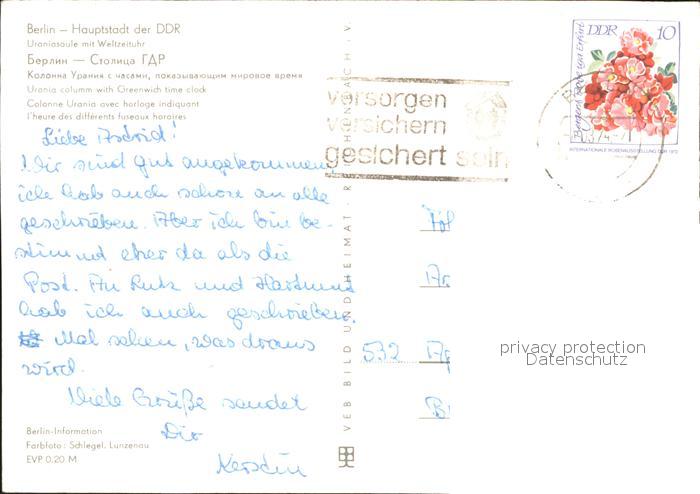 Berlin — Hauptstadt der DDR
Uraniasäule mit Weltzeituhr
Берлин — Столица ГДР
Колонна Урания с часами, показывающим мировое время
Urania columm with Greenwich time clock
Colonne Urania avec horloge indiquant
l'heure des différents fuseaux horaires
Liebe Astrid!
Wir sind gut angekommen,
ich hab auch schon an alle
geschrieben. Aber ich bin be-
stimmt eher da als die
Post. An Lutz und Hartmut
hab ich auch geschrieben.
Mal sehen, was draus
wird.
Viele Grüße sendet
Dir
Kerstin
Berlin-Information
Farbfoto: Schlegel, Lunzenau
EVP 0.20 M
VEB BILD UND HEIMAT · REICHENBACH i. V.
vorsorgen
versichern
gesichert sein
DDR 10
INTERNATIONALE ROSENAUSSTELLUNG DDR 1972
532
privacy protection
Datenschutz